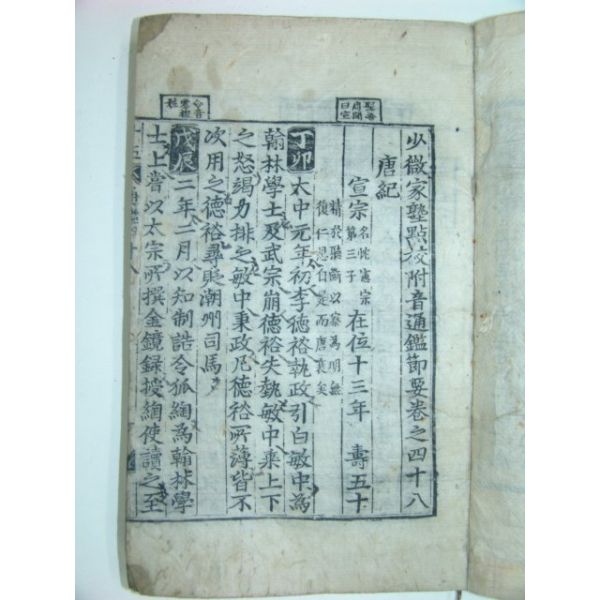 少微家塾點校附音通鑑節要卷之四十八
唐紀
宣宗 名忱憲宗第三子 在位十三年 壽五十
精於聽斷以察爲明無復仁恩自是而唐衰矣
丁卯 大中元年初李德裕執政引白敏中爲
翰林學士及武宗崩德裕失埶敏中乘上下
之怒竭力排之敏中秉政凡德裕所薄皆不
次用之德裕尋貶潮州司馬
戊辰 二年二月以知制誥令狐綯爲翰林學
士上嘗以太宗所撰金鏡錄授綯使讀之至